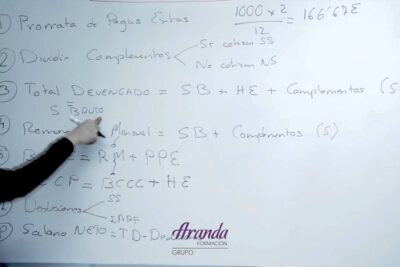 1 Prorrata de Pagas Extras
1000 x 2 / 12 = 166'67€
2 Dividir Complementos
Si cotizan SS
No cotizan NS
3 Total Devengado = SB + HE + Complementos (S)
S = BRUTO
4 Remun Mensual = SB + Complementos (S)
= RM + PPE
CP = BCCC + HE
Deducciones
SS
IRPF
8 Salario Neto = TD - Ded
Aranda
FORMACIÓN
GRUPO